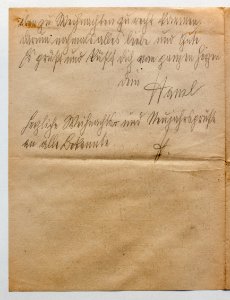 zu Weihnachten zu recht kommen.
nochmals alles Liebe und Gute
Es grüßt und küßt Dich von ganzem Herzen
Dein
Hansl
Herzliche Weihnachts und Neujahrsgrüße
an alle Bekannte